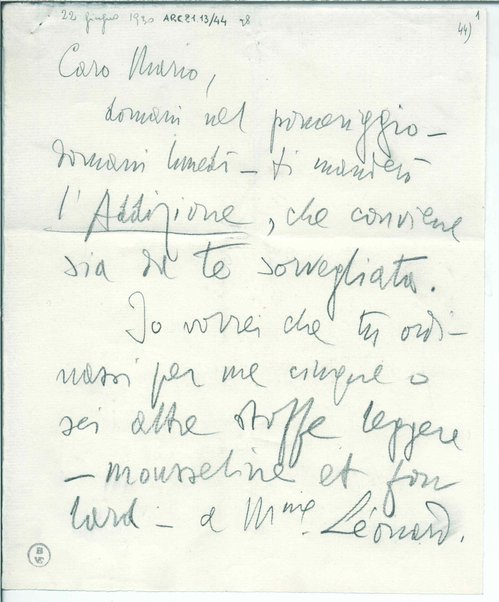 22 giugno 1930 ARC21.13/44
1
44)
Caro Mario,
domani nel pomeriggio –
domani lunedì – ti manderò
l'Addizione, che conviene
sia da te sorvegliata.
Io vorrei che tu ordi-
nassi per me cinque o
sei altre stoffe leggere
– mousseline et fou
lard – a Mme. Léonard.